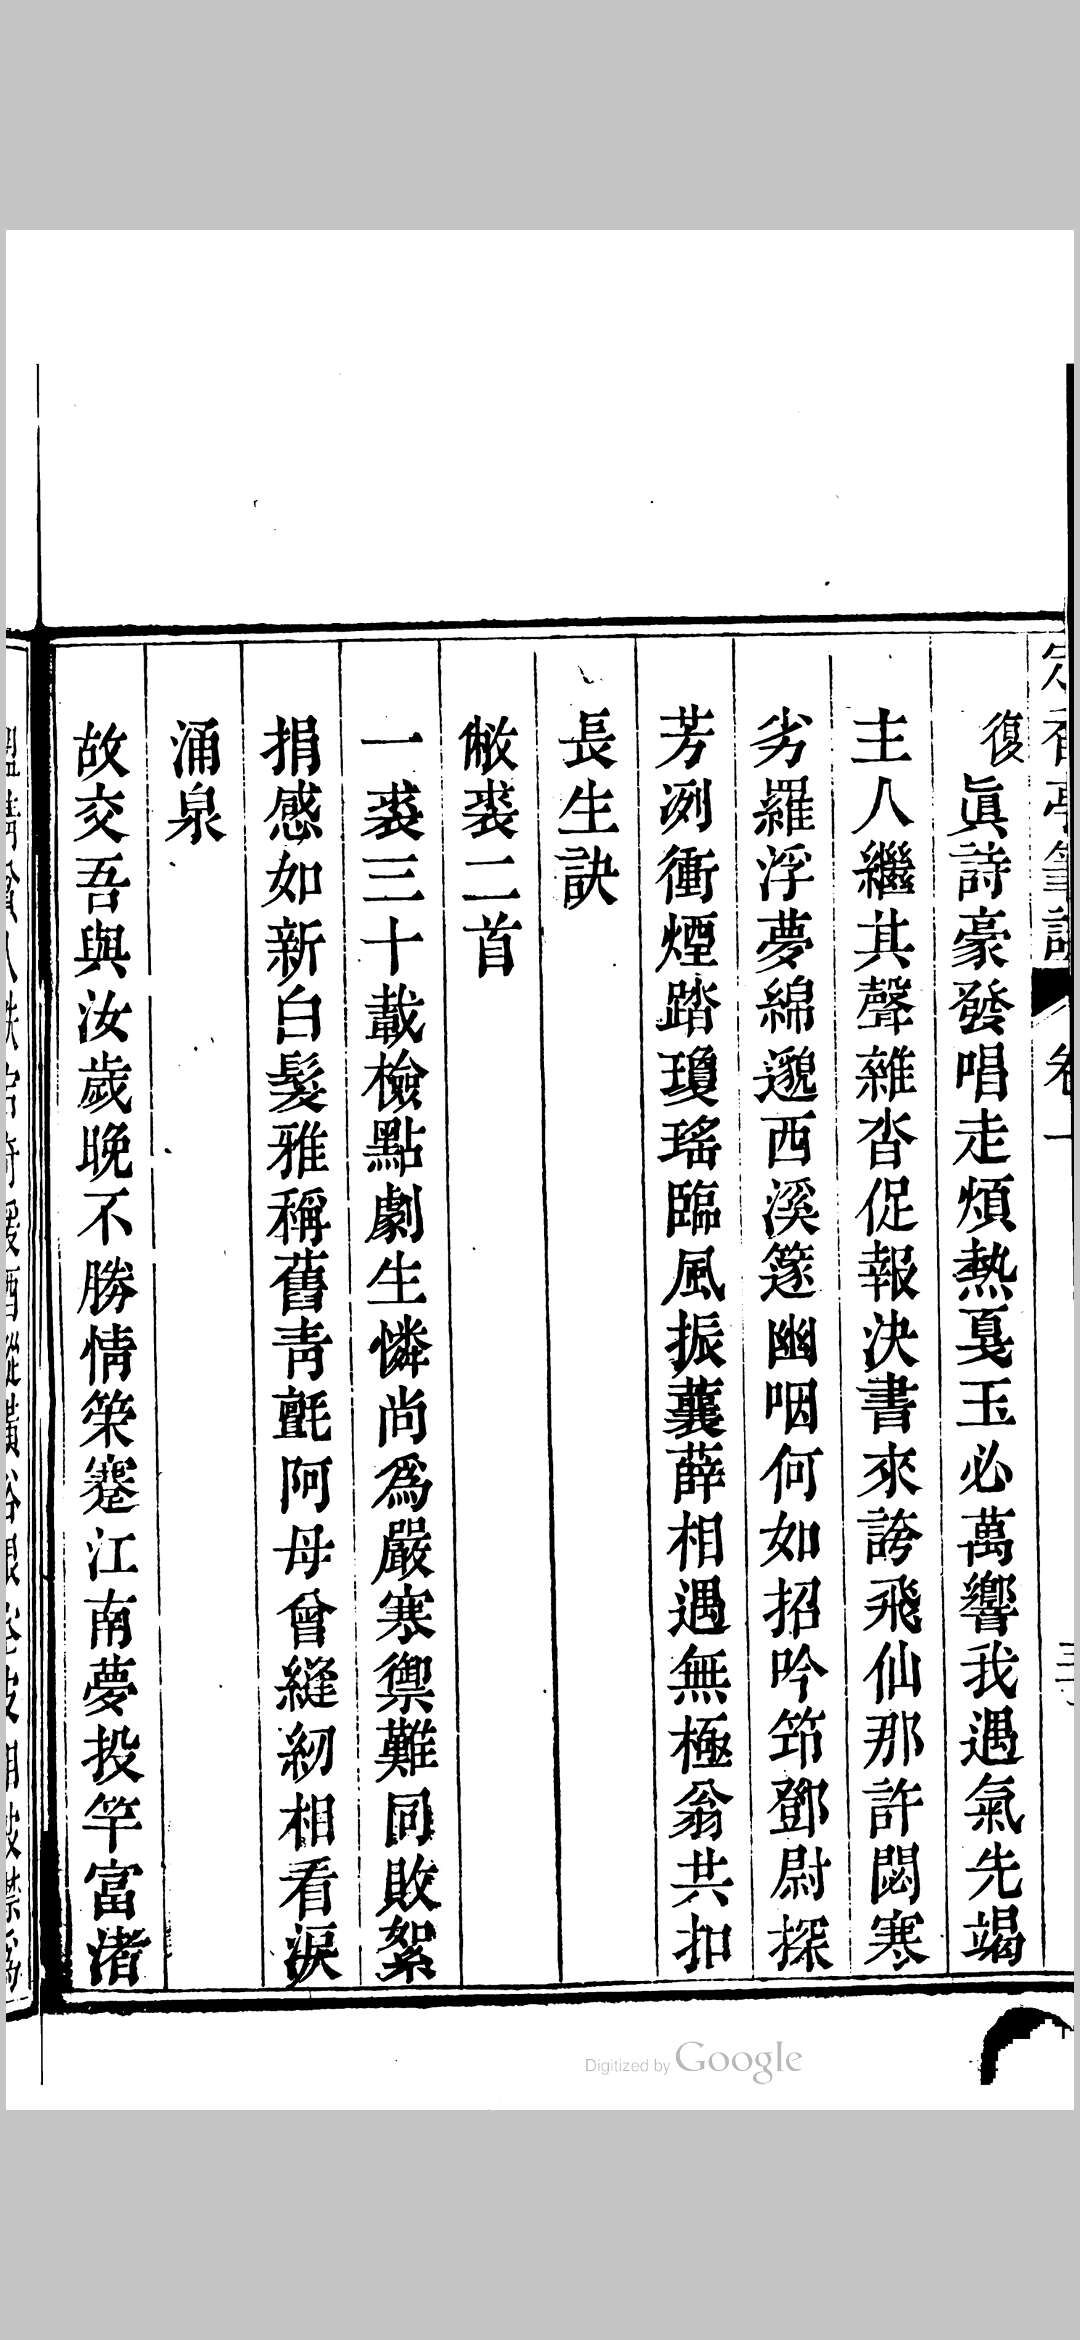 定香亭筆談
卷一
復
眞詩豪發唱走煩熱戛玉必萬響我遇氣先竭
主人繼其聲雜沓促報決書來誇飛仙那許閟寒
劣羅浮夢綿邈西溪篴幽咽何如招吟笻鄧尉探
芳洌衝煙踏瓊瑤臨風振蘘薜相遇無極翁共扣
長生訣
敝裘二首
一裘三十載檢點劇生憐尚爲嚴寒禦難同敗絮
捐感如新白髮雅稱舊靑氈阿母曾縫紉相看淚
涌泉
故交吾與汝歲晚不勝情策蹇江南夢投竿富渚
Digitized by Google